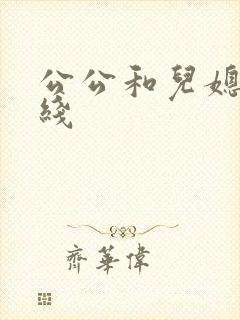 公公和兒媳
綫
齊華偉